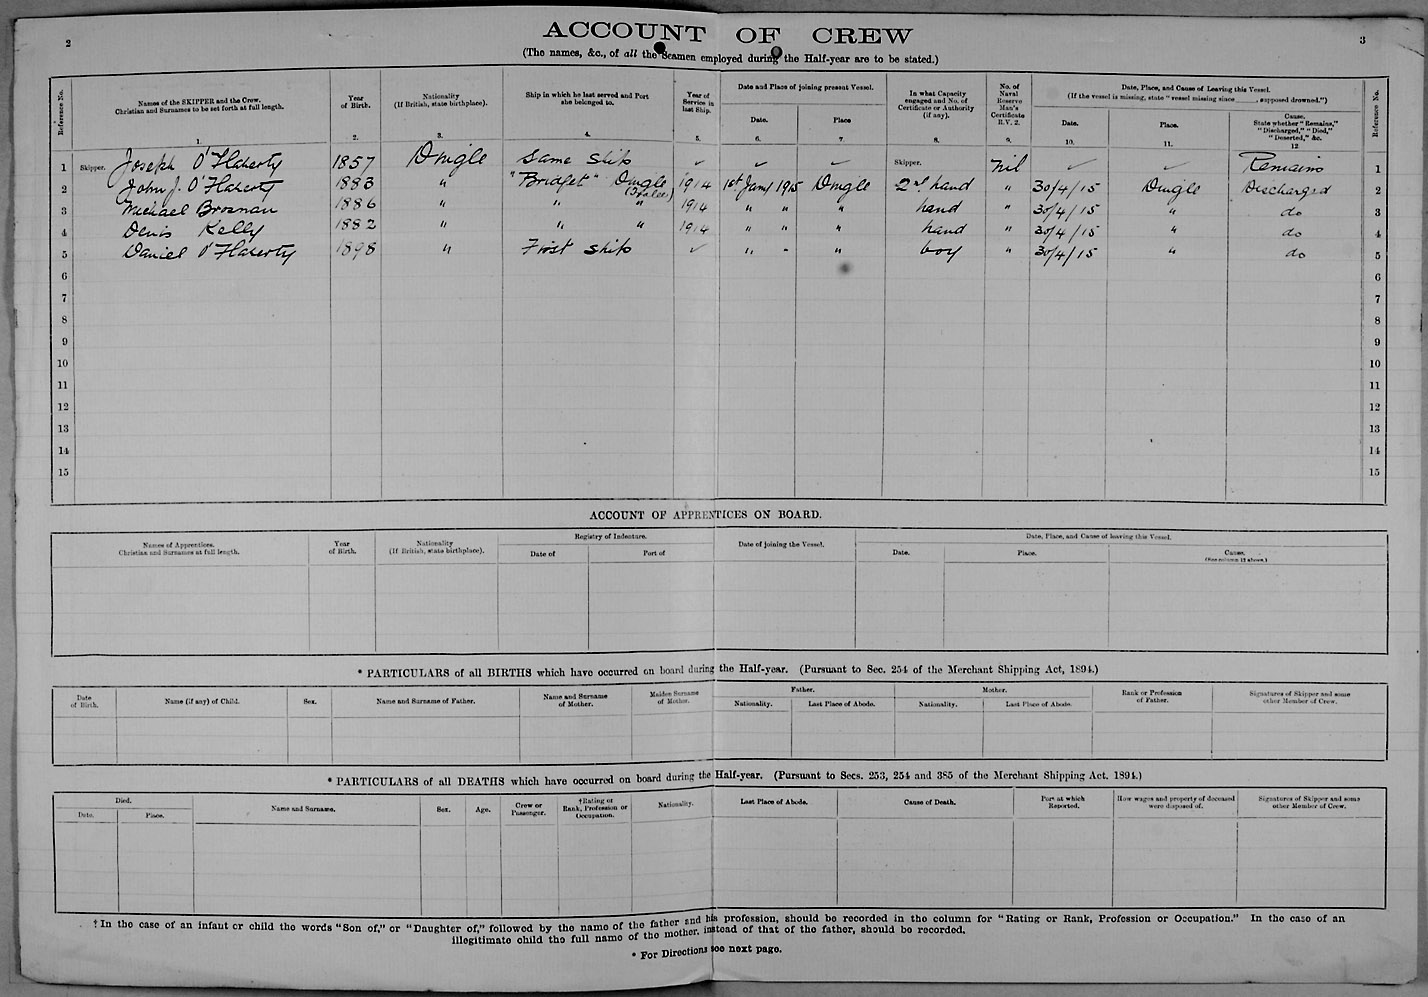 2
3
ACCOUNT OF CREW
(The names, &c., of all the Seamen employed during the Half-year are to be stated.)
Reference No.
Names of the SKIPPER and the Crew. Christian and Surnames to be set forth at full length.
Year of Birth.
Nationality (If British, state birthplace).
Ship in which he last served and Port she belonged to.
Year of Service in last Ship.
Date and Place of joining present Vessel.
Date.
Place
In what Capacity engaged and No. of Certificate or Authority (if any).
No. of Naval Reserve Man's Certificate R.V. 2.
Date, Place, and Cause of Leaving this Vessel.
(If the vessel is missing, state "vessel missing since ____, supposed drowned.")
Date.
Place.
Cause. State whether "Remains," "Discharged," "Died," "Deserted," &c.
Reference No.
1. 2. 3. 4. 5. 6. 7. 8. 9. 10. 11. 12
1 Skipper. Joseph O'Flaherty 1857 Dingle Same Ship ✓ ✓ ✓ Skipper. Nil ✓ ✓ Remains 1
2 John J. O'Flaherty 1883 " "Bridget" Dingle 1914 1st Jany 1915 Dingle 2nd hand " 30/4/15 Dingle Discharged 2
3 Michael Brosnan 1886 " " " 1914 " " " hand " 30/4/15 " do 3
4 Denis Kelly 1882 " " " 1914 " " " hand " 30/4/15 " do 4
5 Daniel O'Flaherty 1898 " First ship ✓ " " " boy " 30/4/15 " do 5
6 6
7 7
8 8
9 9
10 10
11 11
12 12
13 13
14 14
15 15
ACCOUNT OF APPRENTICES ON BOARD.
Names of Apprentices. Christian and Surnames at full length.
Year of Birth.
Nationality (If British, state birthplace).
Registry of Indenture.
Date of
Port of
Date of joining the Vessel.
Date, Place, and Cause of leaving this Vessel.
Date.
Place.
Cause. (See column 12 above.)
* PARTICULARS of all BIRTHS which have occurred on board during the Half-year. (Pursuant to Sec. 254 of the Merchant Shipping Act, 1894.)
Date of Birth.
Name (if any) of Child.
Sex.
Name and Surname of Father.
Name and Surname of Mother.
Maiden Surname of Mother.
Father.
Nationality.
Last Place of Abode.
Mother.
Nationality.
Last Place of Abode.
Rank or Profession of Father.
Signatures of Skipper and some other Member of Crew.
* PARTICULARS of all DEATHS which have occurred on board during the Half-year. (Pursuant to Secs. 253, 254 and 385 of the Merchant Shipping Act. 1894.)
Died.
Date.
Place.
Name and Surname.
Sex.
Age.
Crew or Passenger.
†Rating or Rank, Profession or Occupation.
Nationality.
Last Place of Abode.
Cause of Death.
Port at which Reported.
How wages and property of deceased were disposed of.
Signatures of Skipper and some other Member of Crew.
† In the case of an infant or child the words "Son of," or "Daughter of," followed by the name of the father and his profession, should be recorded in the column for "Rating or Rank, Profession or Occupation." In the case of an
illegitimate child the full name of the mother, instead of that of the father, should be recorded.
* For Directions see next page.